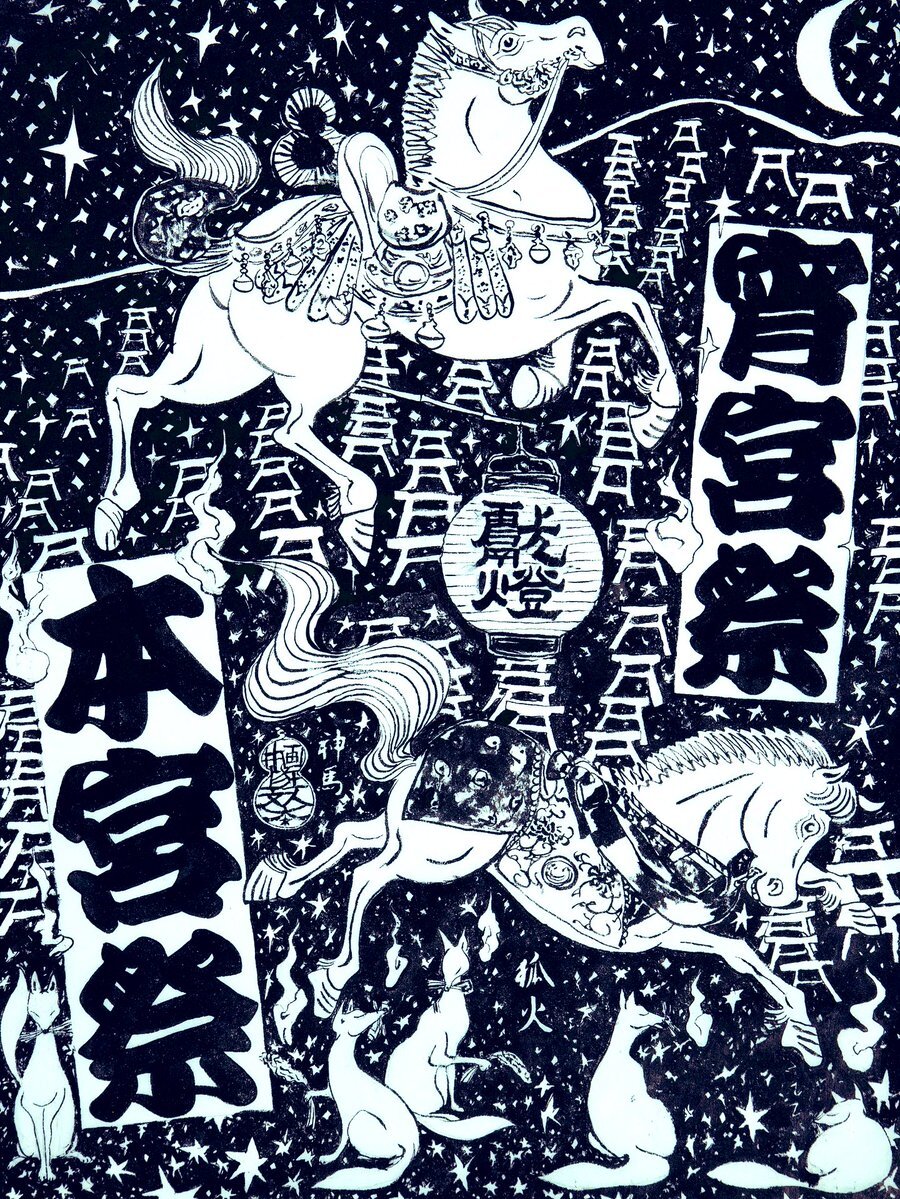 宵宮祭
献燈
本宮祭
神馬
狐火